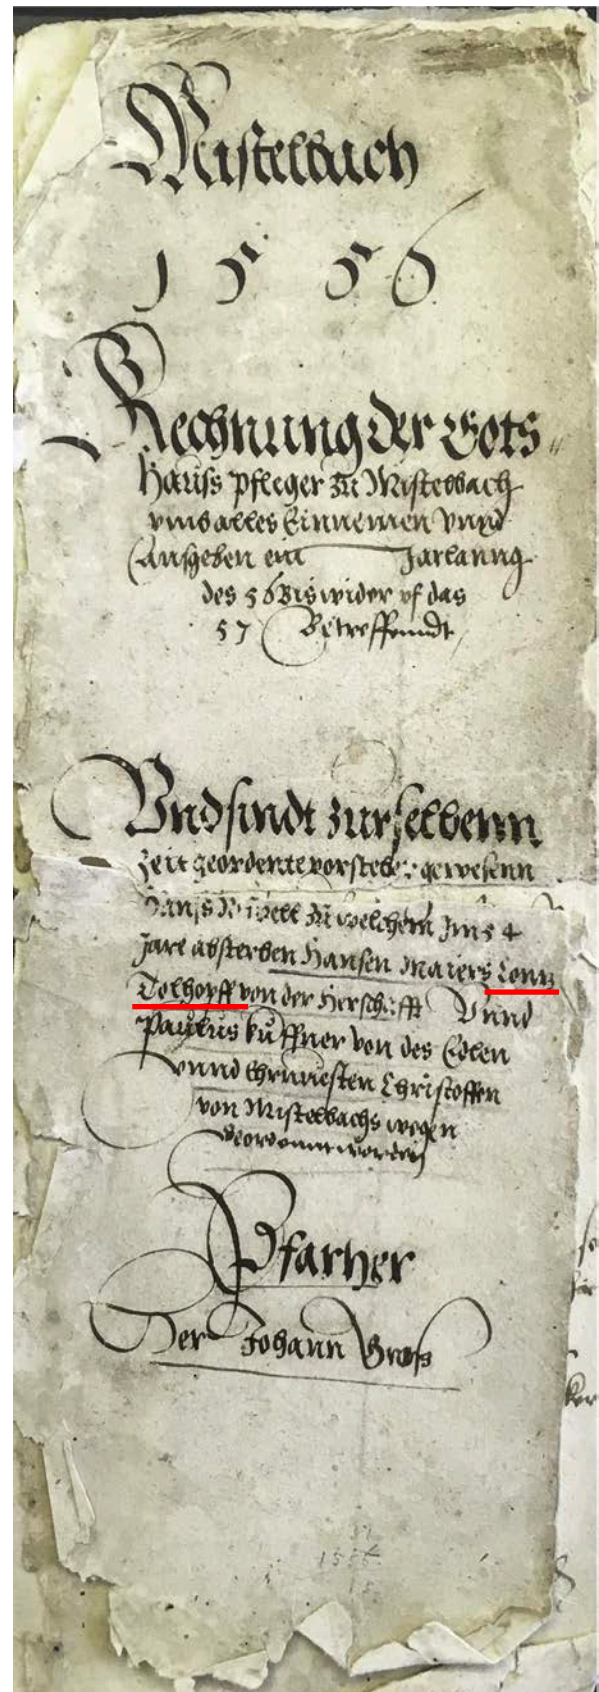 Mistelbach
1 5 5 6
Rechnung der Gots„
hauss pfleger zu Mistelbach
umb alles Einnemen unnd
Aussgeben ein Jarlanng
des 56 Bis wider uf das
57 Betreffenndt
Und sindt zur selbenn
zeit geordente vorsteher gewesenn
Hanns zu welchem Im 54
Jare absterben Hansen Maiers Contz
Tolhopff von der Herschafft Unnd
Paulus Küffner von des Edlen
unnd Ehrnuesten Christoffen
von Mistelbachs wegen
Geordennt worden
Pfarher
Der Johann Gross
1556